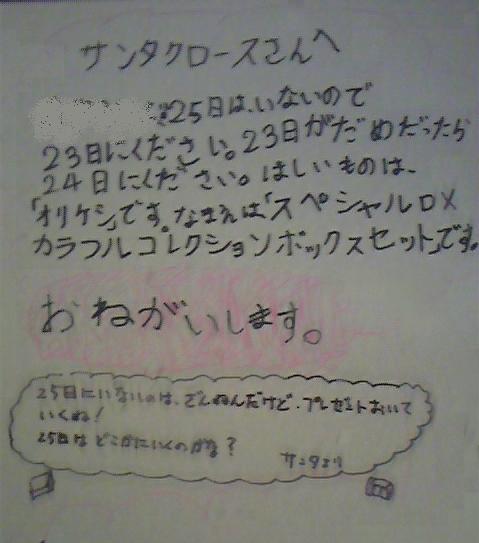 サンタクロースさんへ
25日は、いないので
23日にください。23日がだめだったら
24日にください。ほしいものは、
「オリケシ」です。なまえは「スペシャルDX
カラフルコレクションボックスセット」です。
おねがいします。
25日にいないのは、ざんねんだけど、プレゼントおいて
いくね！
25日はどこかにいくのかな？
サンタより